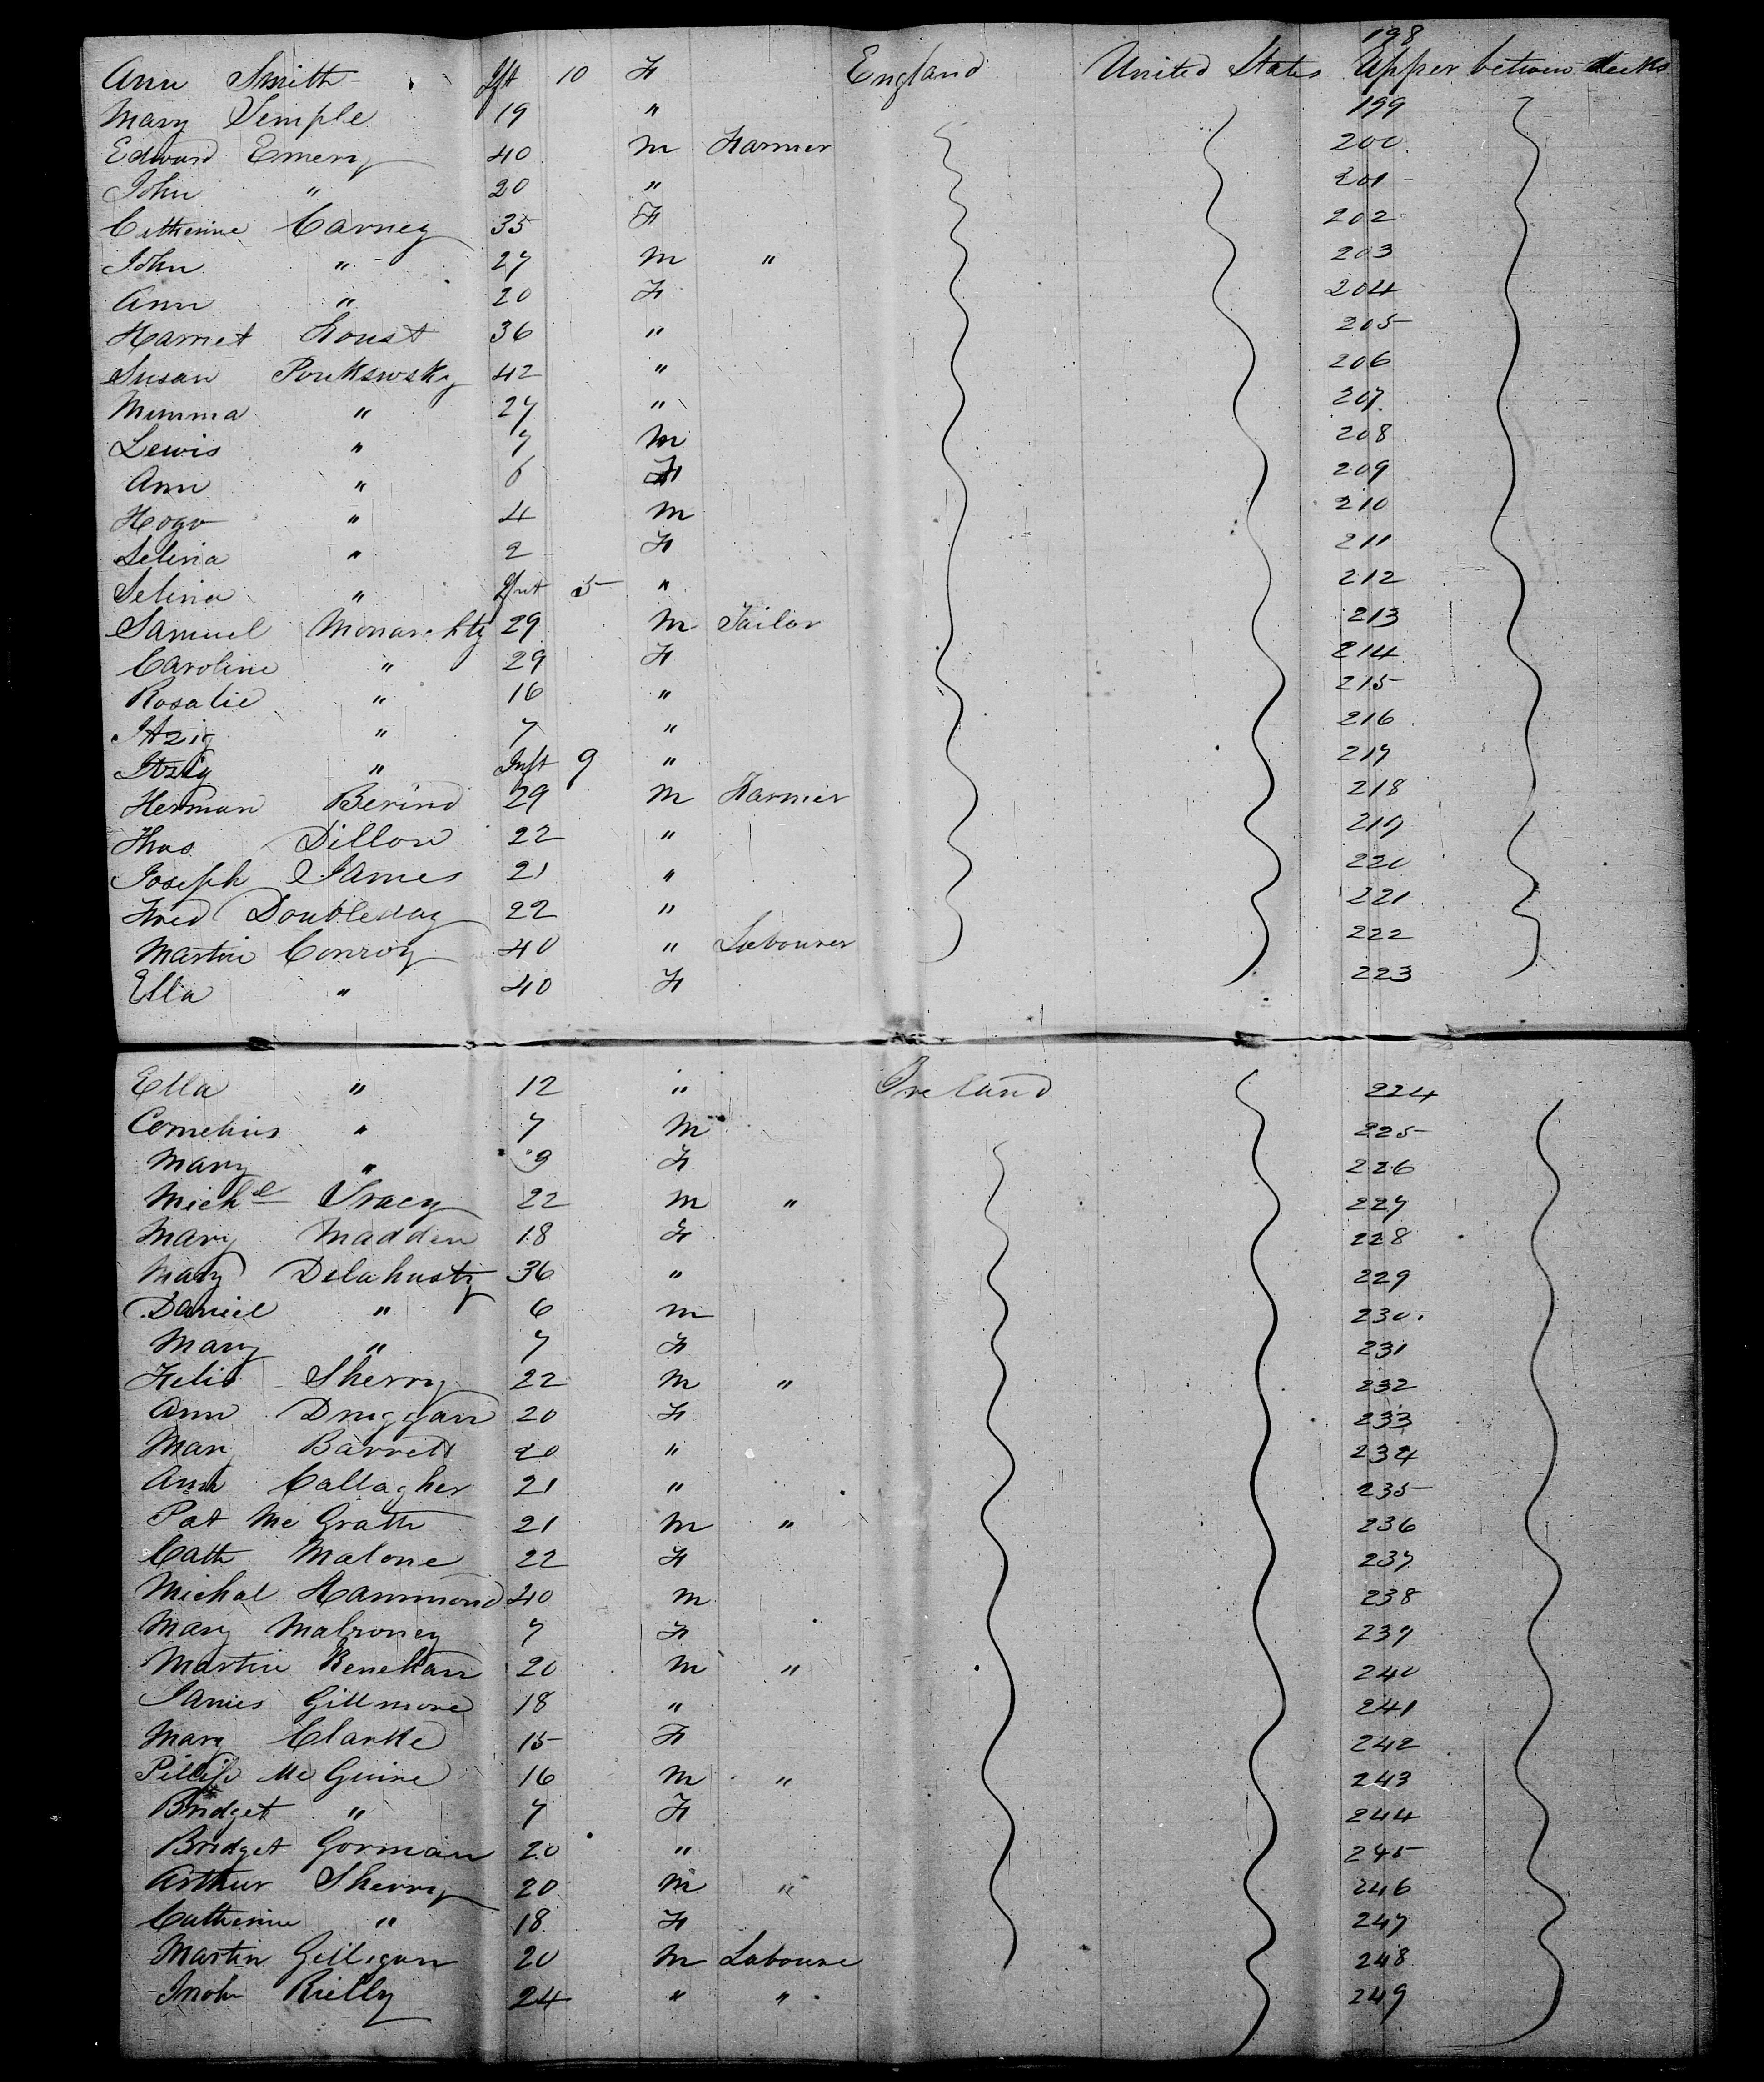 198
Ann Smith Ift 10 F England United States Upper between decks
Mary Semple 19 " 199
Edward Emery 40 M Farmer 200
John " 20 " 201
Catherine Carney 35 F 202
John " 27 M " 203
Ann " 20 F 204
Harriet Foust 36 " 205
Susan 42 " 206
Mimma " 27 " 207
Lewis " 7 M 208
Ann " 6 F 209
Hogo " 4 M 210
Selina " 2 F 211
Selina " Inft 5 " 212
Samuel 29 M Tailor 213
Caroline " 29 F 214
Rosalie " 16 " 215
Itzig " 7 " 216
Itzig " Inft 9 " 217
Herman Berind 29 M Farmer 218
Thos Dillon 22 " 219
Joseph James 21 " 220
Fred Doubleday 22 " 221
Martin Conroy 40 " Labourer 222
Ella " 40 F 223
Ella " 12 " Ireland 224
Cornelius " 7 M 225
Mary " 9 F 226
Michl Tracy 22 M " 227
Mary Madden 18 F 228
Mary Delahusty 36 " 229
Daniel " 6 M 230
Mary " 7 F 231
Felix Sherry 22 M " 232
Ann Druggan 20 F 233
Mary Barrett 20 " 234
Ann Callagher 21 " 235
Pat Mc Grath 21 M " 236
Cath Malone 22 F 237
Michal Hammond 40 M 238
Mary Malroney 7 F 239
Martin Renehan 20 M " 240
James Gillmore 18 " 241
Mary Clarke 15 F 242
Pillip Mc Guire 16 M " 243
Bridget " 7 F 244
Bridget Gorman 20 " 245
Arthur Sherry 20 M " 246
Catherine " 18 F 247
Martin Gilligan 20 M Laboure 248
Rielly 24 " " 249